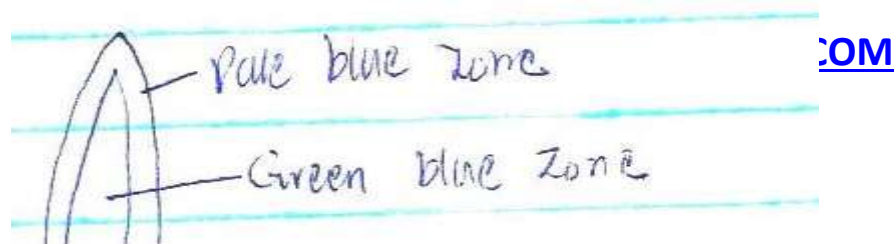 Pale blue zone
COM
Green blue zone